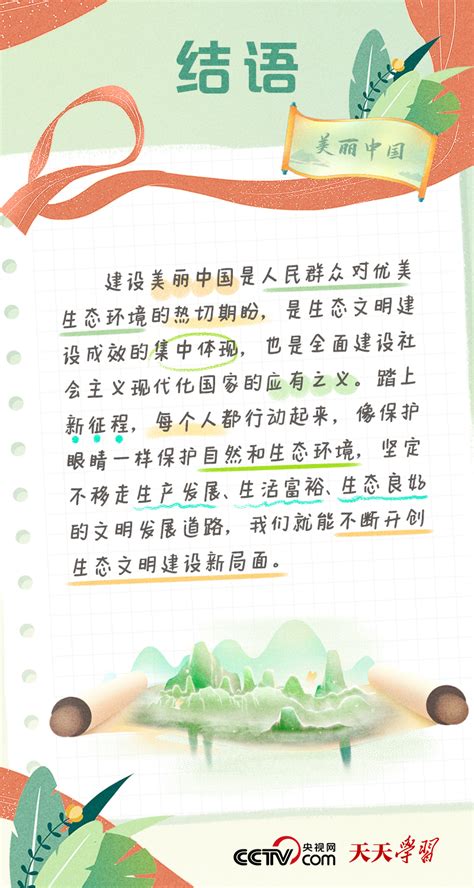 结语
美丽中国
建设美丽中国是人民群众对优美
生态环境的热切期盼，是生态文明建
设成效的集中体现，也是全面建设社
会主义现代化国家的应有之义。踏上
新征程，每个人都行动起来，像保护
眼睛一样保护自然和生态环境，坚定
不移走生产发展、生活富裕、生态良好
的文明发展道路，我们就能不断开创
生态文明建设新局面。
CCTV.com 央视网 天天学習